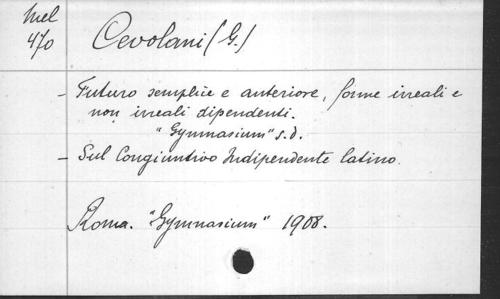 Mel
470
Cevolani (G.)
- Futuro semplice e anteriore, forme irreali e
non irreali dipendenti.
"Gymnasium" s.d.
- Sul Congiuntivo Indipendente latino.
Roma. "Gymnasium" 1908.